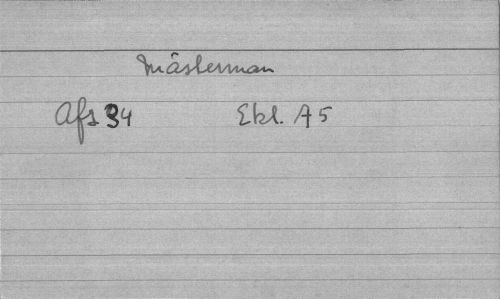 Mästerman
Afs 34 Ekl. A5